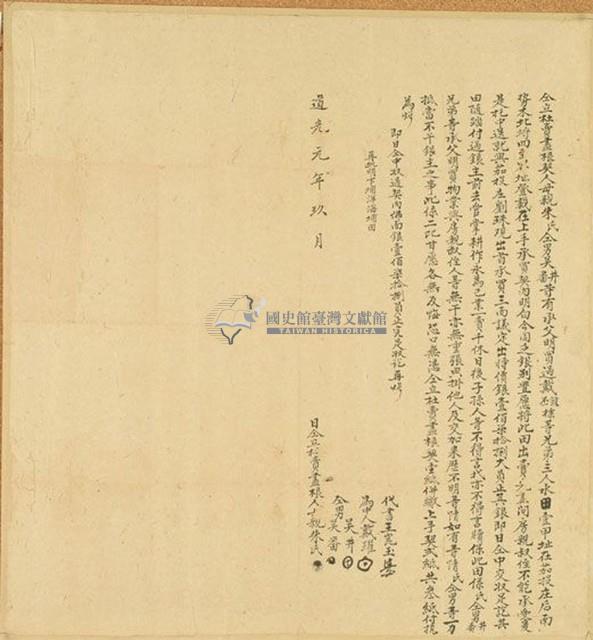 仝立杜賣盡根契人母親朱氏仝男吳井番等有承父明買過戴標等兄弟三人水田壹甲址在茄投庄后南
勝禾北埒四至界址登載在上手承買契內明白今因乏銀別置愿將此田出賣先盡問房親叔侄不能承受
是托中送就與茄投庄劉珠現出首承買三面議定出時價銀壹佰柒拾捌大員正其銀即日仝中交收足訖其
田隨踏付過銀主前去管掌耕作永為己業一賣千休日後子孫人等不得言找亦不得言贖保此田係氏仝男井番
兄弟等承父明買物業與房親叔侄人等無干亦無重張典掛他人及交加來歷不明等情如有等情氏仝男等一力
抵當不干銀主之事此係二比甘愿各無反悔恐口無憑仝立杜賣盡根契壹紙併繳上手契貳紙共叁紙付執
為炤
即日仝中收過契內佛面銀壹佰柒拾捌員正完足收訖再炤
再批明下埔洋海埔田
代書王
為中人戴躍
吳井
仝男吳番
道光元年玖月
日仝立杜賣盡根人母親朱氏
國史館臺灣文獻館
TAIWAN HISTORICA